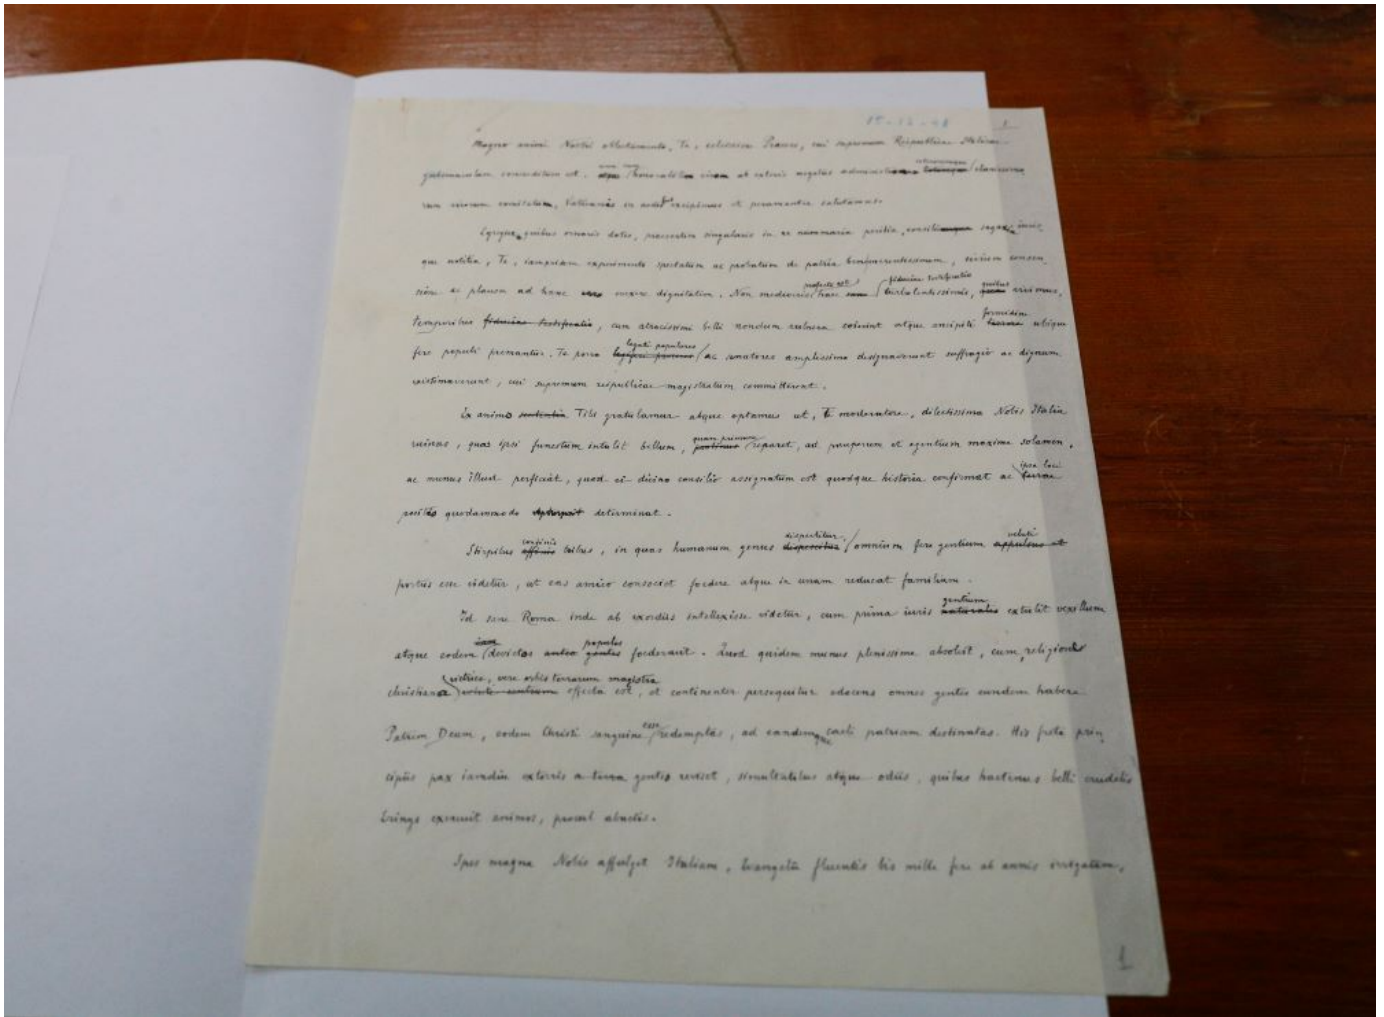 15-12-48 1
Magno animi Nostri oblectamento, Te, celsissime Praeses, cui supremum Reipublicae Italicae
gubernaculum concreditum est, honorabilem virum et ceteris negotiis clarissimo
rum virorum comitatum, Vaticanas in aedes excipimus et peramanter salutamus.
Egregiae, quibus ornaris dotes, praesertim singularis in re nummaria peritia, sagax iuris
que notitia, Te, iampridem experimento spectatum ac probatum de patria benemerentissimum, civium consen
sione ac plausu ad hanc vexere dignitatem. Non mediocris profecto est haec fiduciae testificatio turbulentissimis, quibus vivimus,
temporibus fiduciae testificatio, cum atrocissimi belli nondum vulnera coierint atque ancipiti formidine ubique
fere populi premantur. Te porro legati populares ac senatores amplissimo designaverunt suffragio ac dignum
existimaverunt, cui supremum reipublicae magistratum committerent.
Ex animo Tibi gratulamur atque optamus ut, Te moderatore, dilectissima Nobis Italia
ruinas, quas ipsi funestum intulit bellum, quam primum reparet, ad pauperum et egentium maxime solamen,
ac munus illud perficiat, quod ei divino consilio assignatum est quodque historia confirmat ac ipse loci
positus quodammodo determinat.
Stirpibus confinis talibus, in quas humanum genus dispertitur, omnium fere gentium veluti
portus esse videtur, ut eas amico consociet foedere atque in unam reducat familiam.
Id sane Roma inde ab exordiis intellexisse videtur, cum prima iuris gentium extulit vexillum
atque eodem devictos populos foederavit. Quod quidem munus plenissime absolvit, cum religione
christiana victrice, vere orbis terrarum magistra effecta est, et continenter persequitur edocens omnes gentes eundem habere
Patrem Deum, eodem Christi sanguine esse redemptas, ad eandemque caeli patriam destinatas. His freta prin
cipiis pax iamdiu extorris a terra gentes reviset, simultatibus atque odiis, quibus hactenus belli crudelis
Erinys exacuit animos, procul abactis.
Spes magna Nobis affulget Italiam, Evangelii fluentis bis mille fere ab annis irrigatam,
1